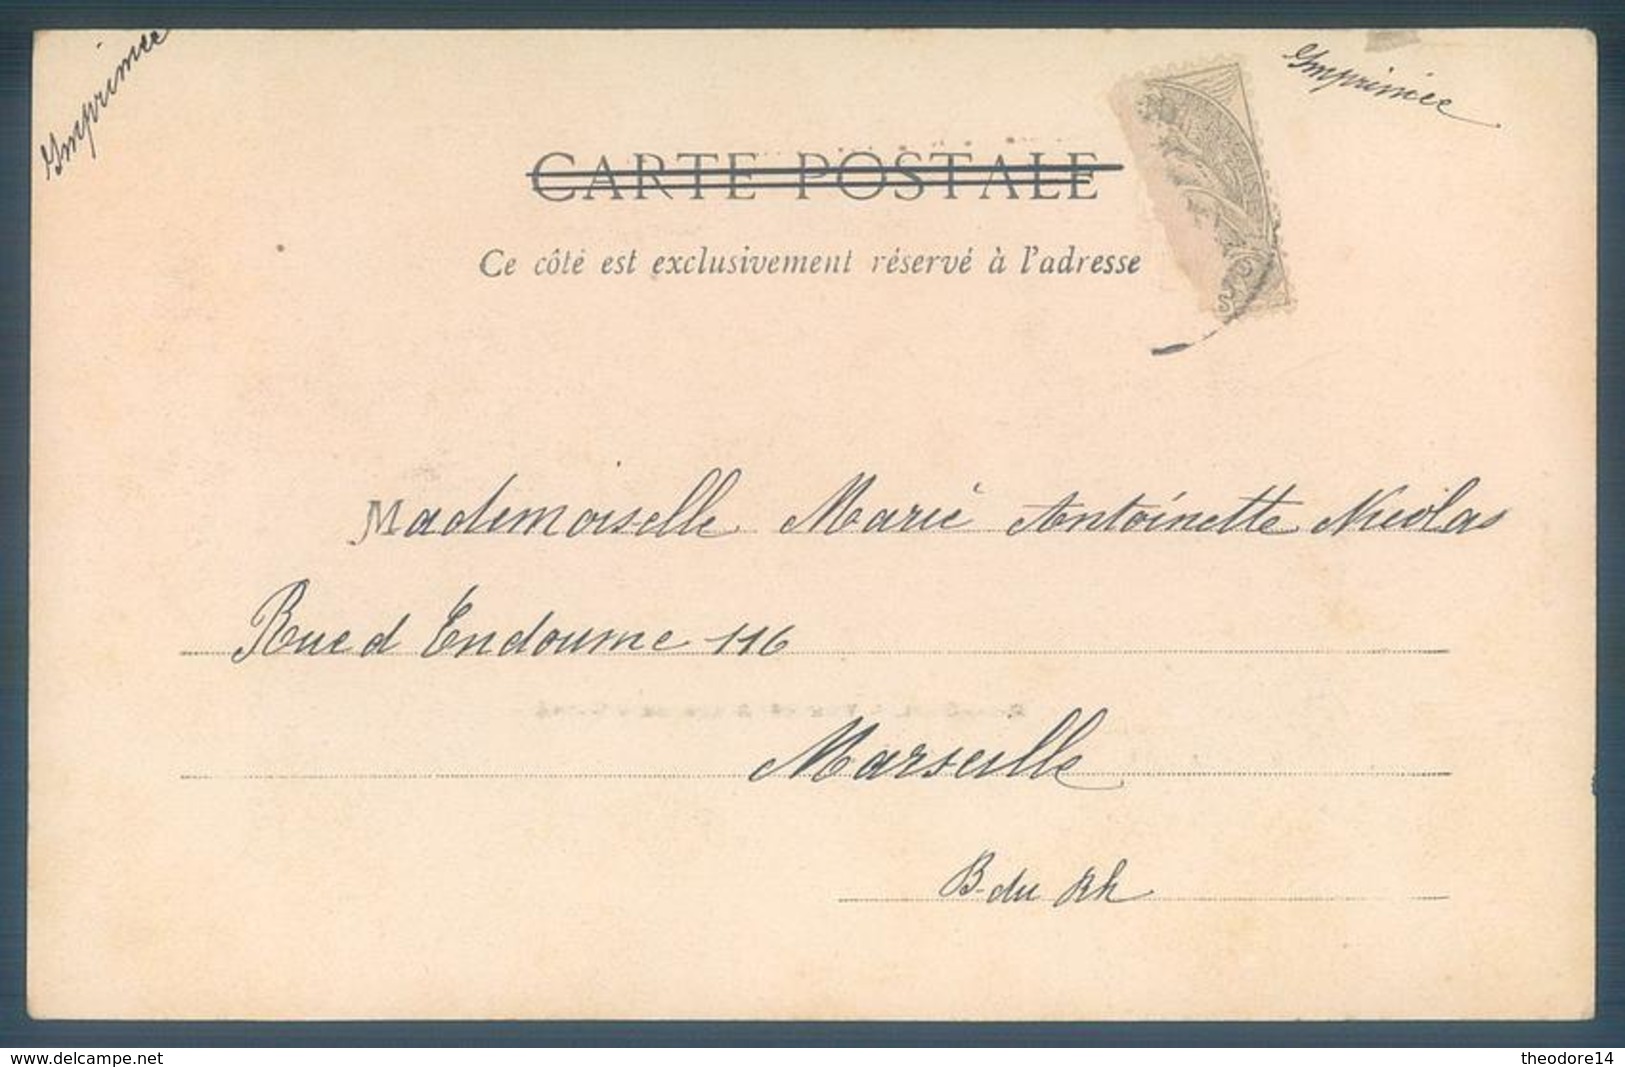 Imprimée
Imprimée
CARTE POSTALE
Ce côté est exclusivement réservé à l'adresse
Mademoiselle Marie Antoinette Nicolas
Rue d Endoume 116
Marseille
B-du Rh
www.delcampe.net
theodore14